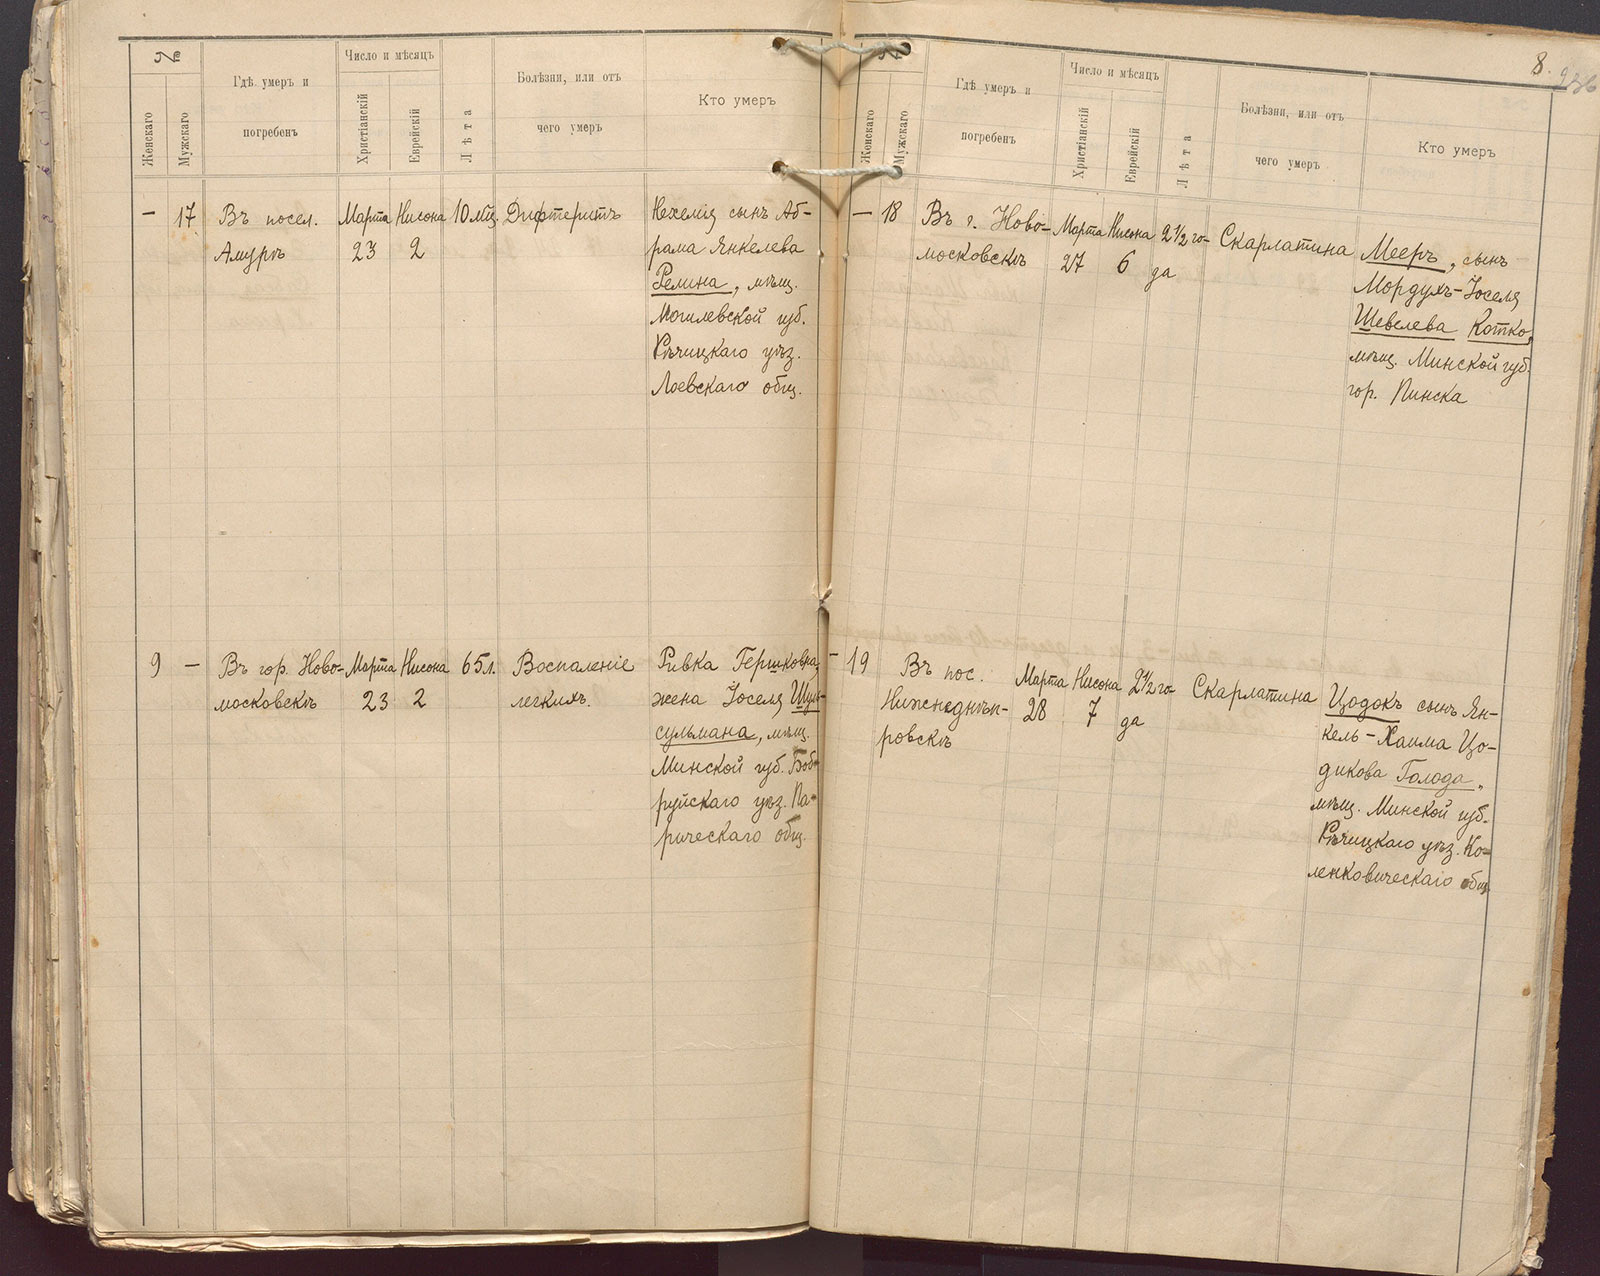 №
Женскаго
Мужскаго
Гдѣ умеръ и
погребенъ
Число и мѣсяцъ
Христіанскій
Еврейскій
Лѣта
Болѣзни, или отъ
чего умеръ
Кто умеръ
— 17
Въ посел.
Амуръ
Марта
23
Нисона
2
10 мѣс.
Дифтеритъ
Нехемія сынъ Аб-
рама Янкелева
Релина, мѣщ.
Могилевской губ.
Рѣчицкаго уѣз.
Лоевскаго общ.
9 —
Въ гор. Ново-
московскѣ
Марта
23
Нисона
2
65 л.
Воспаленіе
легкихъ.
Ривка Гершковна,
жена Іоселя Шуль-
сульмана, мѣщ.
Минской губ. Боб-
руйскаго уѣз. Па-
рическаго общ.
8.
№
Женскаго
Мужскаго
Гдѣ умеръ и
погребенъ
Число и мѣсяцъ
Христіанскій
Еврейскій
Лѣта
Болѣзни, или отъ
чего умеръ
Кто умеръ
— 18
Въ г. Ново-
московскѣ
Марта
27
Нисона
6
2 1/2 го-
да
Скарлатина
Мееръ, сынъ
Мордухъ-Іоселя
Шевелева Котко,
мѣщ. Минской губ.
гор. Пинска
— 19
Въ пос.
Нижнеднѣп-
ровскѣ
Марта
28
Нисона
7
2 1/2 го-
да
Скарлатина
Цодокъ сынъ Ян-
кель-Хаима Цо-
дикова Голода,
мѣщ. Минской губ.
Рѣчицкаго уѣз. Ко-
ленковическаго общ.